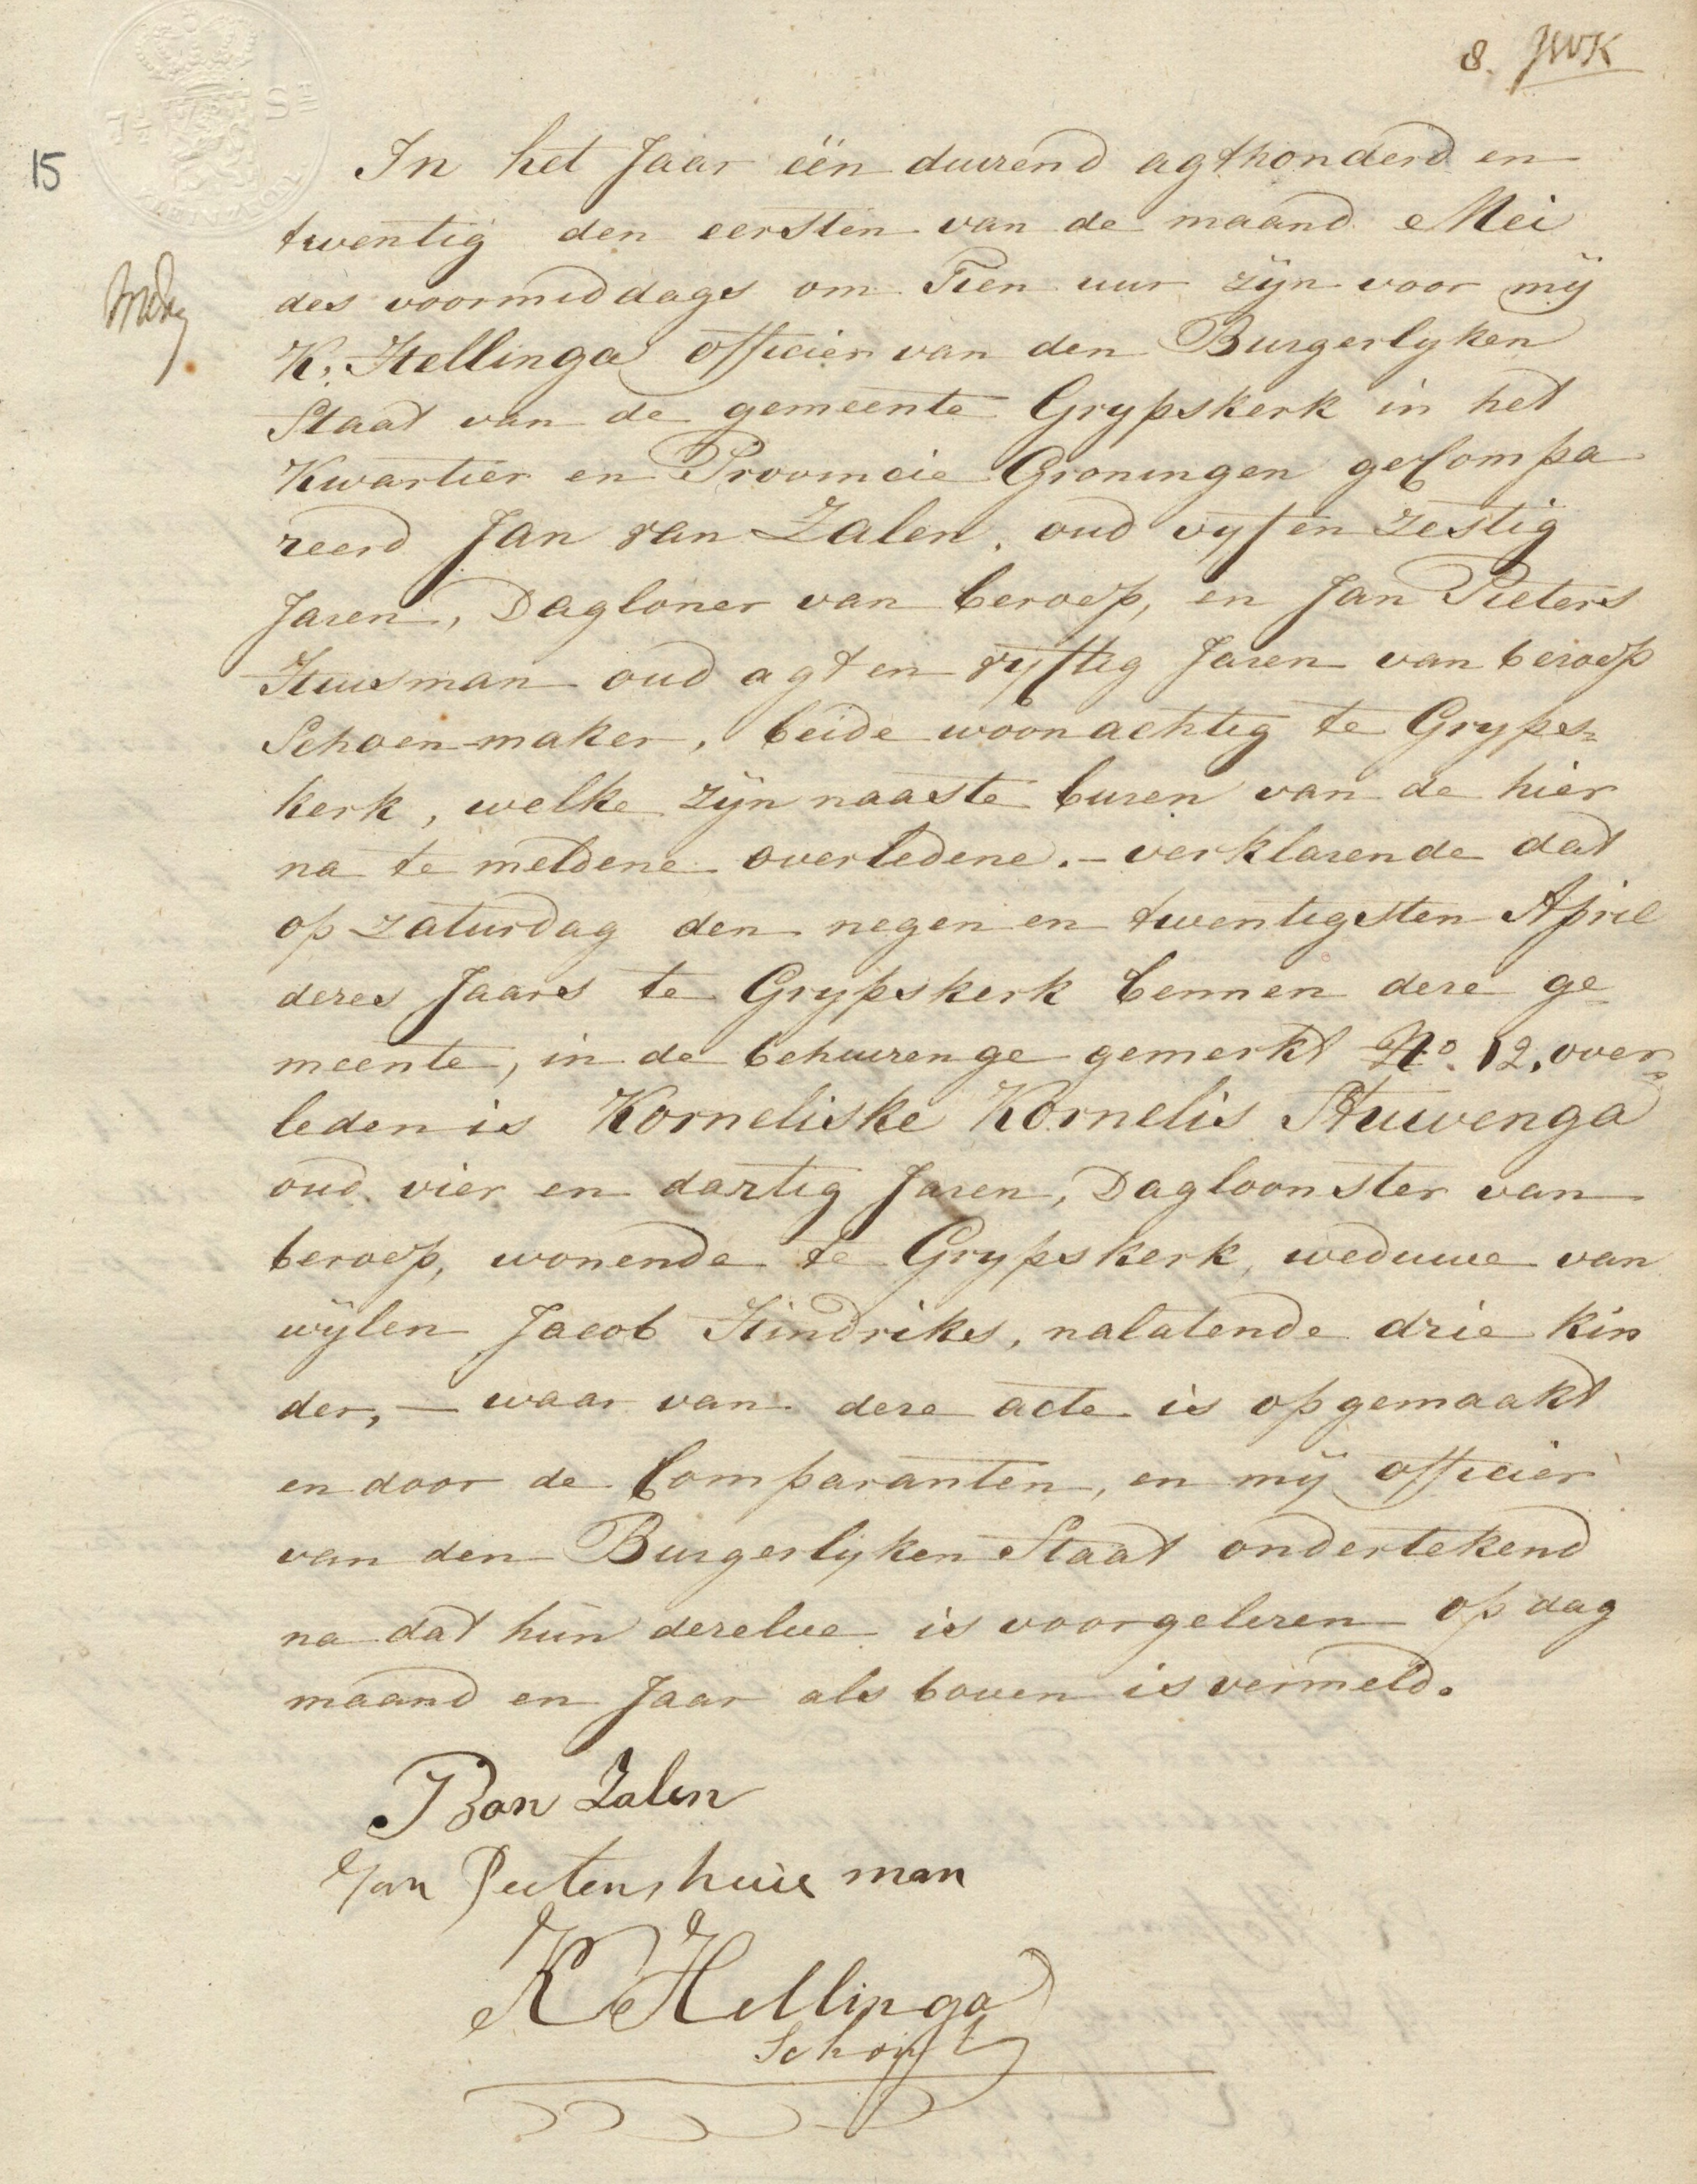 8. JWK
15
In het Jaar één duizend agthonderd en
twentig den eersten van de maand Mei
des voormiddags om Tien uur zÿn voor mÿ
K. Hellinga officier van den Burgerlyken
Staat van de gemeente Grypskerk in het
Kwartier en Provincie Groningen geCompa
reerd Jan van Zalen, oud vyf en zestig
Jaren, Dagloner van beroep, en Jan Pieters
Huisman oud agt en vyftig Jaren van beroep
Schoen-maker, beide woonachtig te Gryps=
kerk, welke zÿn naaste buren van de hier
na te meldene overledene. - verklarende dat
op zaturdag den negen en twentigsten April
dezes Jaars te Grypskerk binnen deze ge=
meente, in de behuizenge gemerkt No. 12, over=
leden is Korneliske Kornelis Stuivenga
oud vier en dartig Jaren, Dagloonster van
beroep, wonende te Grypskerk, weduwe van
wÿlen Jacob Hindriks, nalatende drie kin
der, — waar van deze acte is opgemaakt
en door de Comparanten, en mÿ officier
van den Burgerlyken Staat ondertekend
na dat hun dezelve is voorgelezen op dag
maand en Jaar als boven is vermeld.
J Van Zalen
Jan Pieters huis man
K Hellinga
Schout